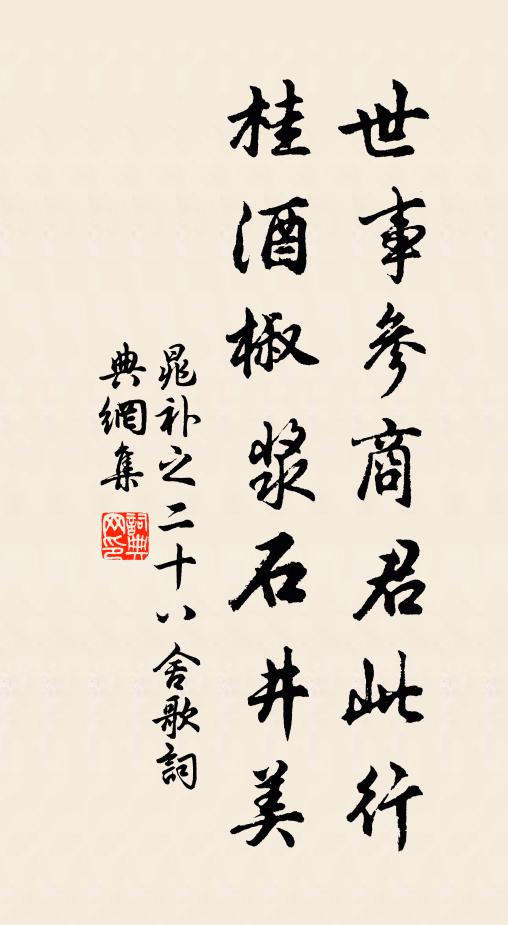 世事參商君此行
桂酒椒漿石井美
晁补之二十八舍歌詞
典網集
詞典
网印